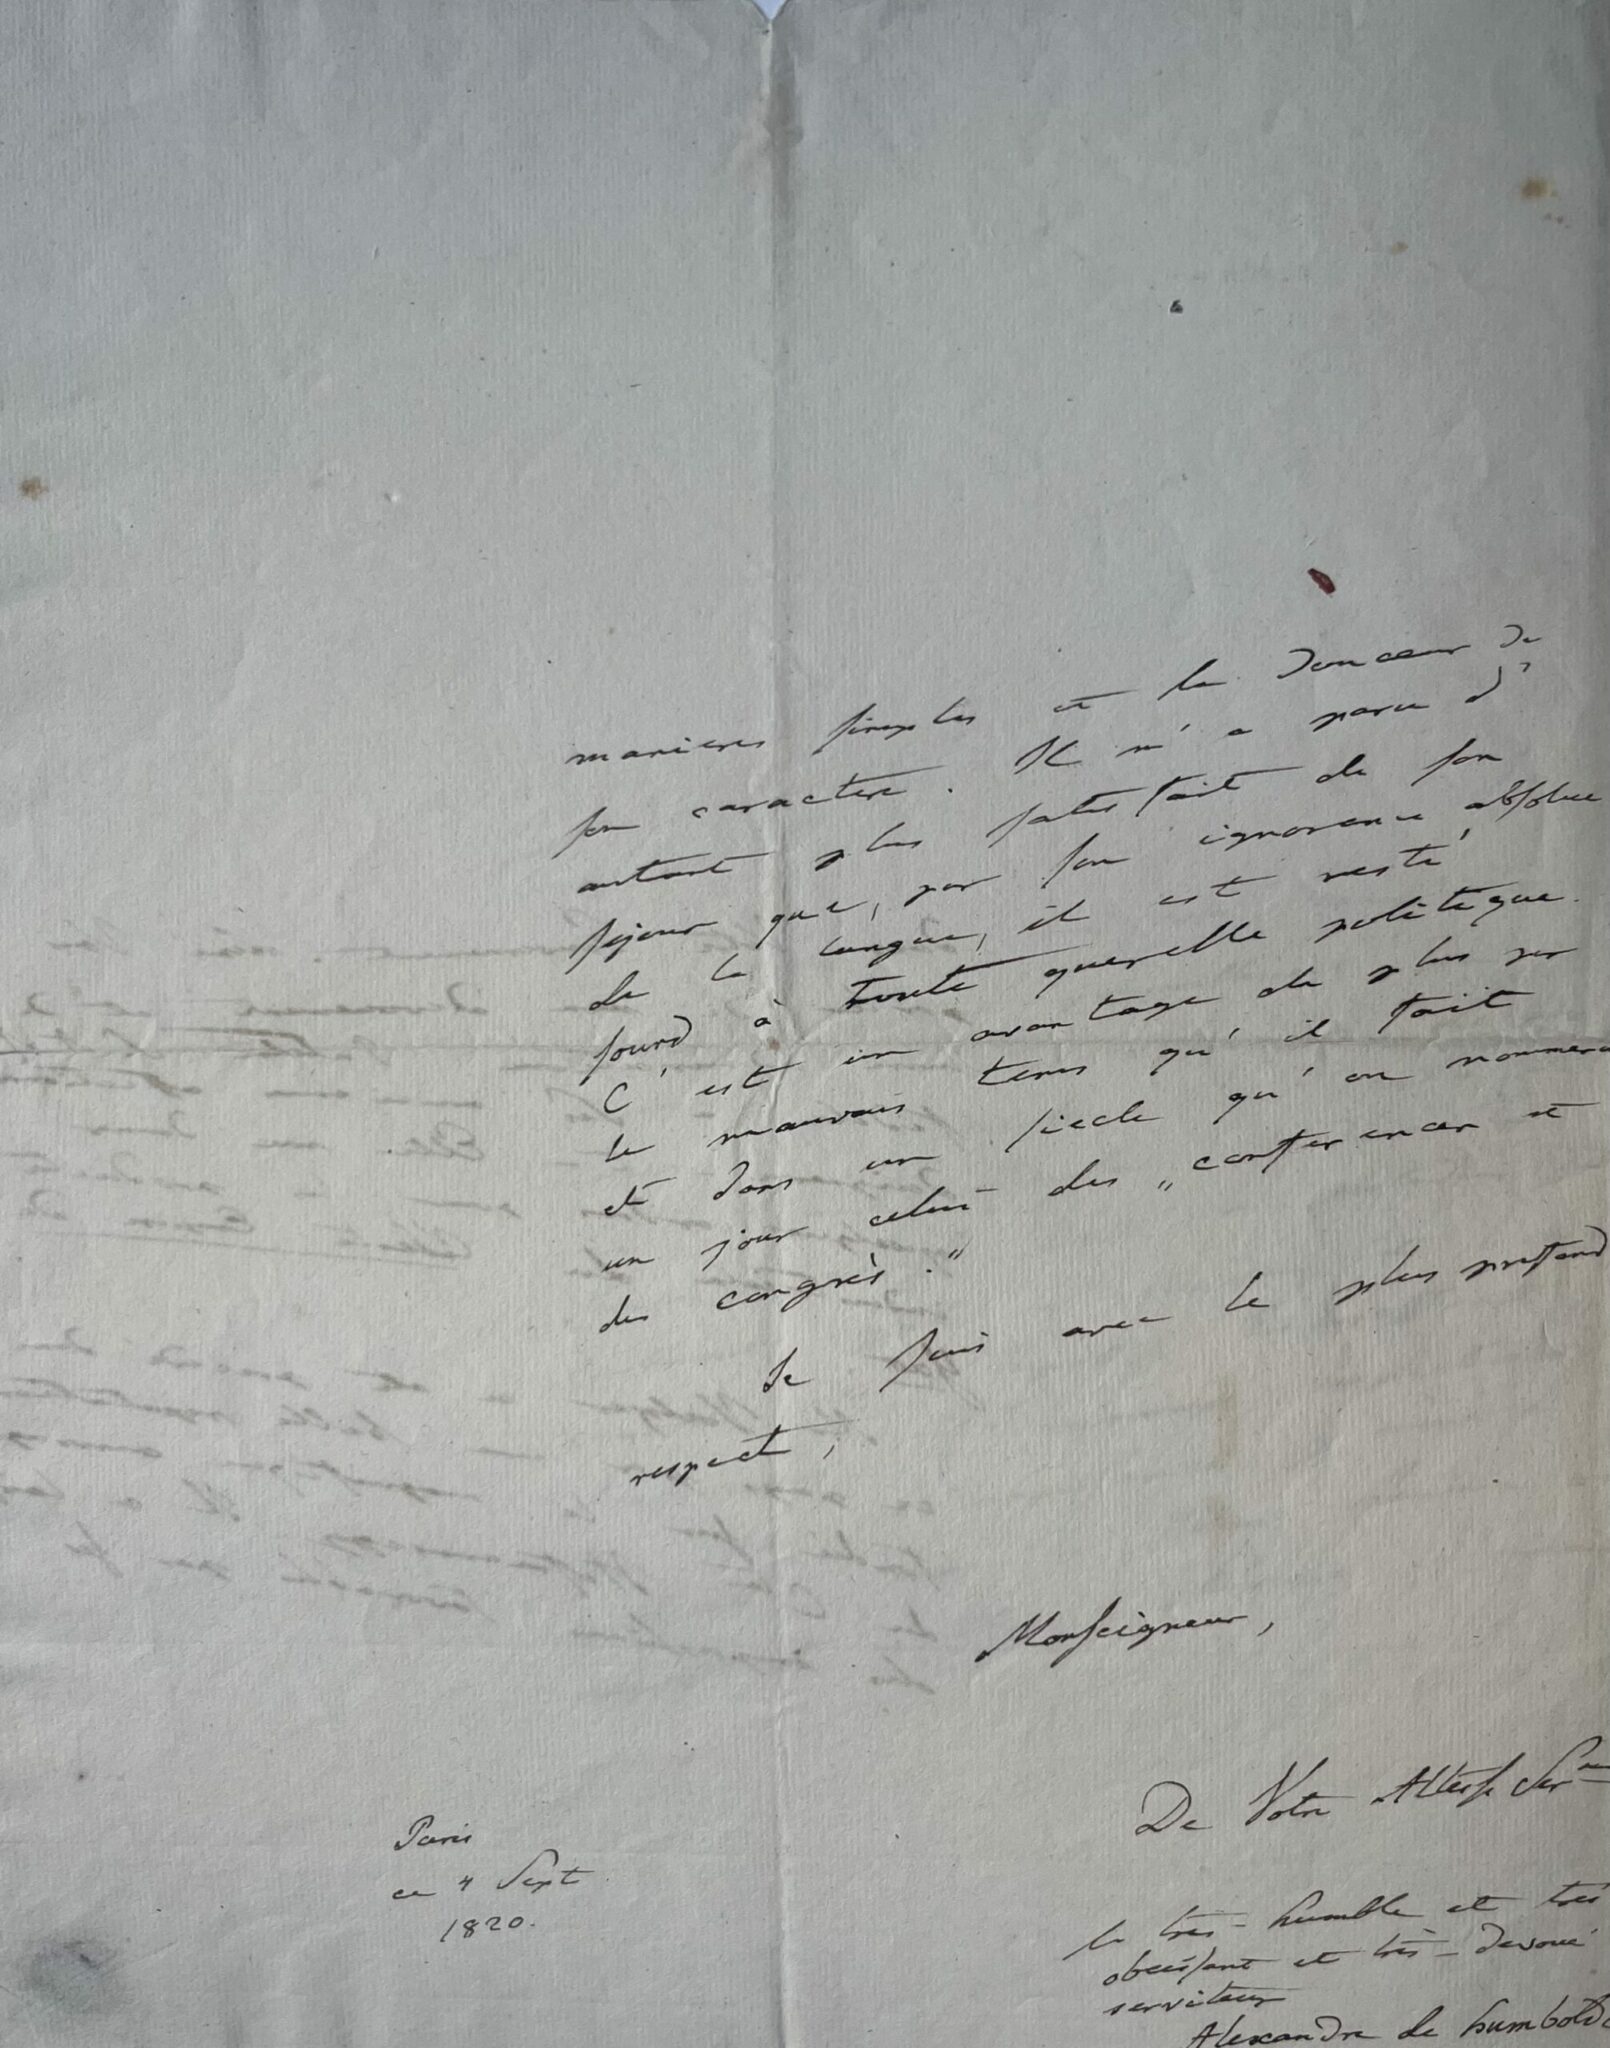 manieres simples et la douceur de
son caractere. Il m'a paru d'
autant plus satisfait de son
sejour que, par son ignorance absolue
de la langue, il est resté
sourd à toute querelle politique.
C'est un avantage de plus par
le mauvais tems qu'il fait
et dans un siecle qu'on nommera
un jour celui des „conferences et
des congrès."
Je suis avec le plus profond
respect,
Monseigneur,
De Votre Altesse Ser^me
Paris
ce 4 Sept
1820.
le très-humble et très
obeissant et très-devoué
serviteur
Alexandre de Humboldt